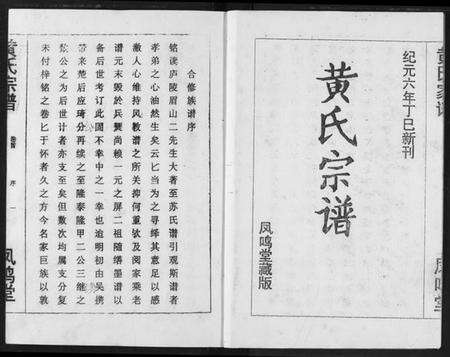 黄氏家谱
纪元六年丁巳新刊
黄氏宗谱
凤鸣堂藏版
凤鸣堂
合修族谱序
铭读庐陵眉山二先生大著至苏氏谱引观斯谱者
孝弟之心油然生矣云匕当为之寻绎其意足以感
激人心维持风教谱之所关抑何重欤及阅家乘老
谱元末毁於兵燹尚赖一元之屏二祖随缮墨谱以
备后世考订此固不幸中之一幸也逾明初由吴携
来楚后应琦分再续之至隆泰隆甲二公三继之
公之为后世计者亦支至矣但数次均属支分复
未付梓铭之卷匕于怀者久之方今名家巨族以敦
黄氏宗谱
卷首
序
一
凤鸣堂